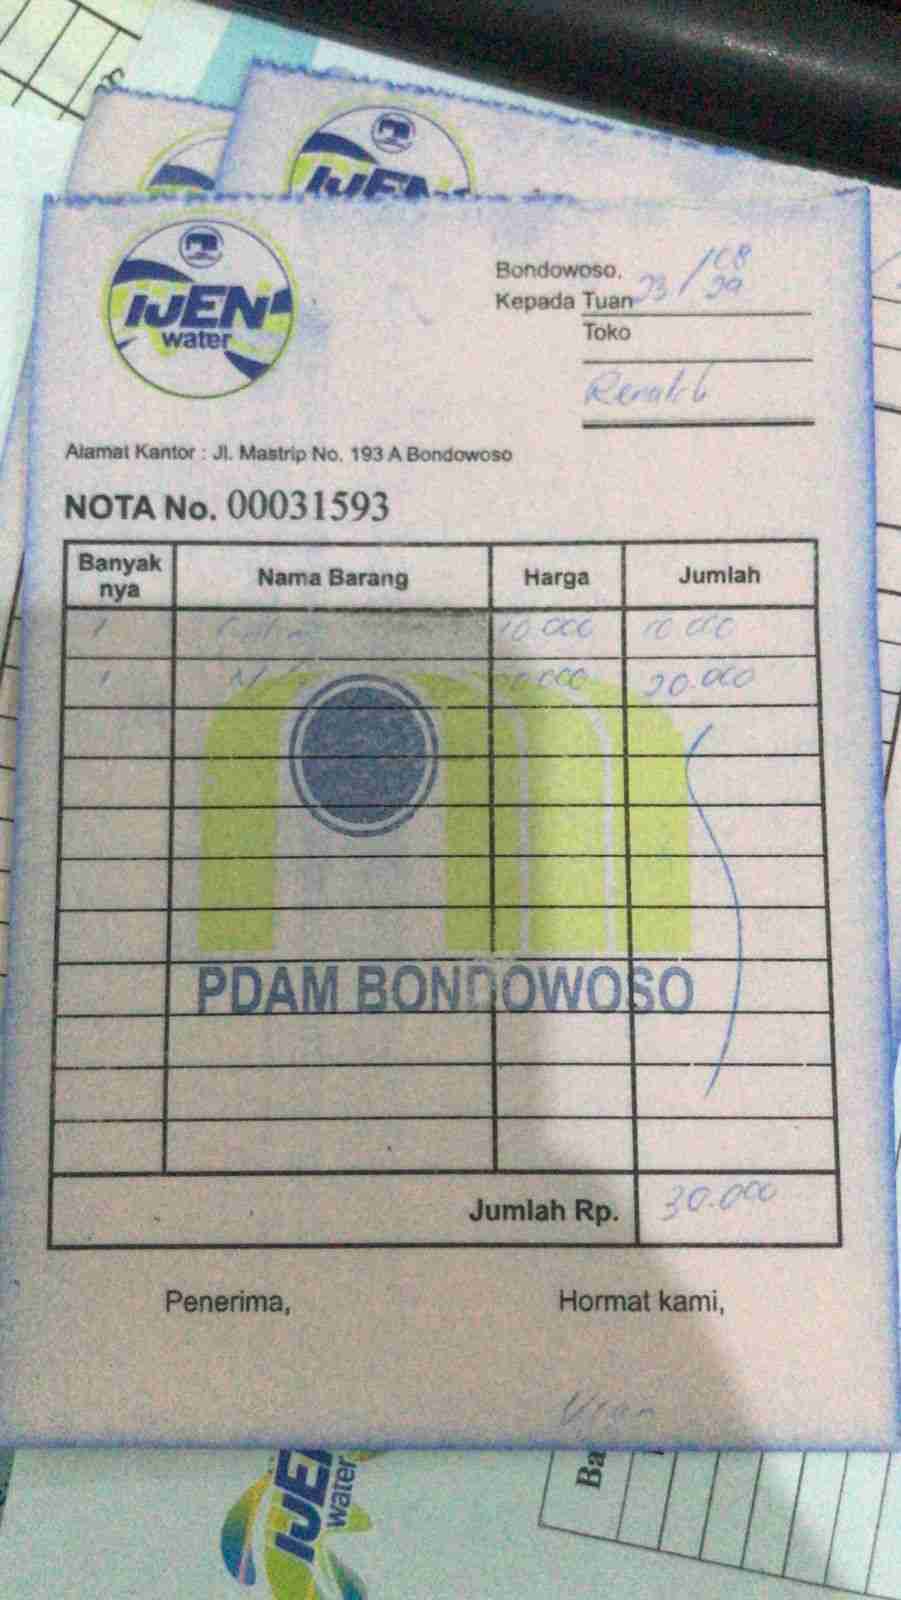 IJEN
IJEN
water
Bondowoso, 23/08
Kepada Tuan
Toko
Alamat Kantor : Jl. Mastrip No. 193 A Bondowoso
NOTA No. 00031593
Banyak nya Nama Barang Harga Jumlah
1 10.000 10.000
1 20.000
PDAM BONDOWOSO
Jumlah Rp. 30.000
Penerima, Hormat kami,
IJEN
water
Ba